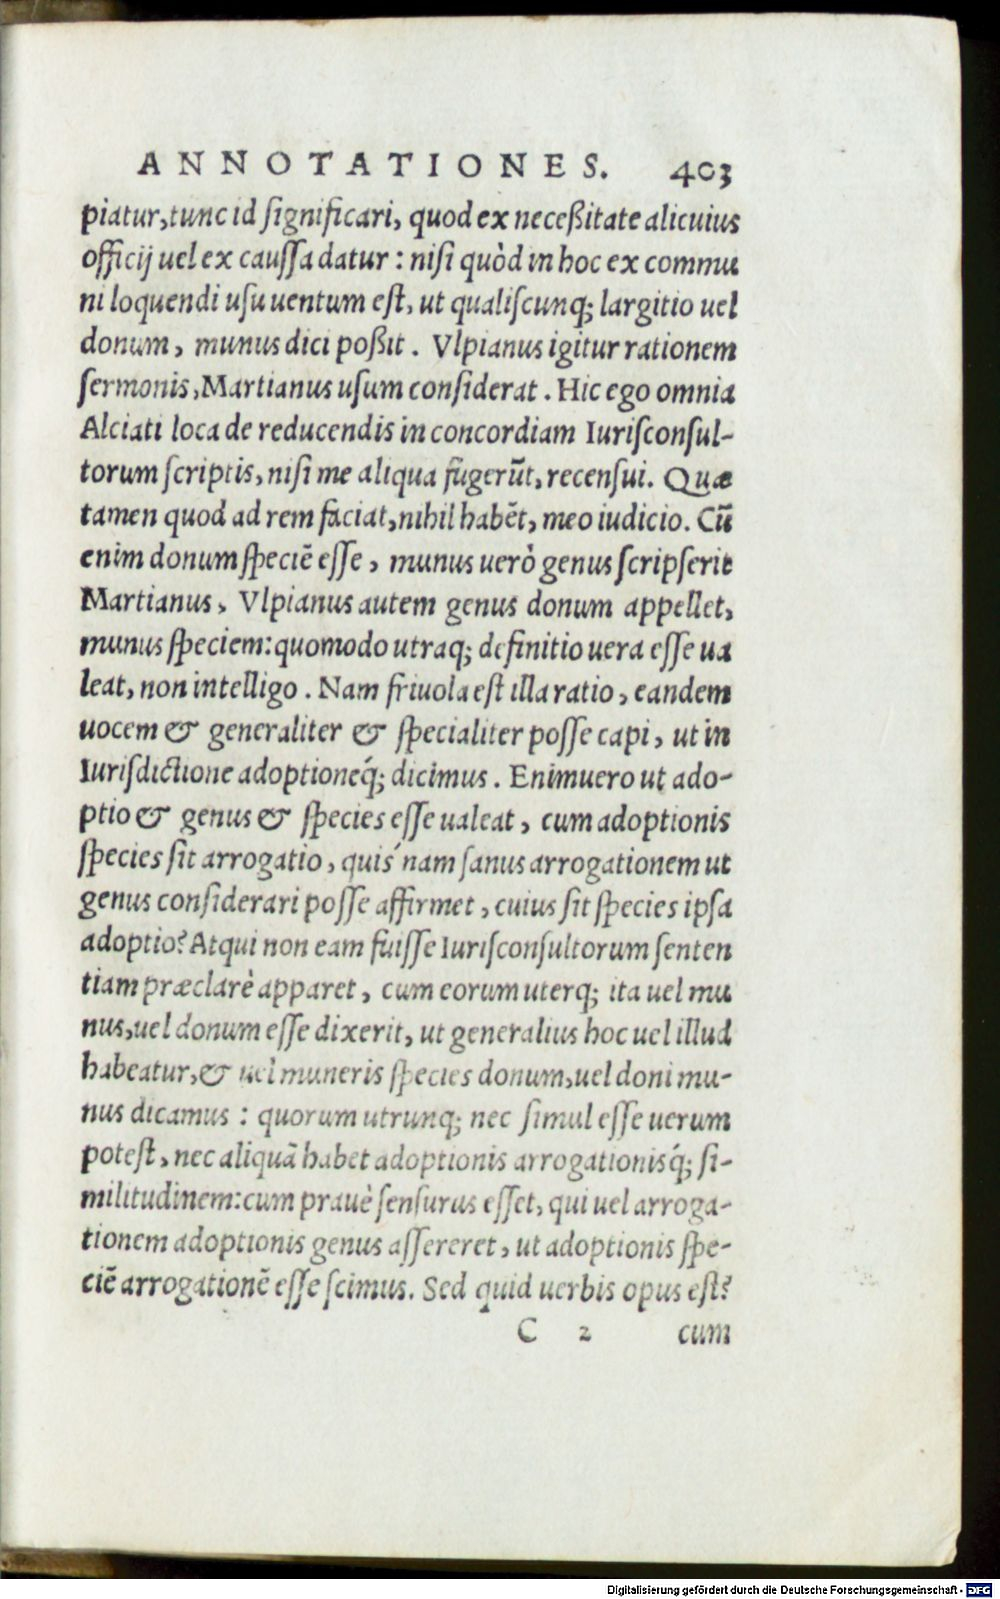 ANNOTATIONES. 403
piatur, tunc id ſignificari, quod ex neceßitate alicuius
officij uel ex cauſſa datur : niſi quòd in hoc ex commu
ni loquendi uſu uentum eſt, ut qualiſcunq; largitio uel
donum, munus dici poßit. Vlpianus igitur rationem
ſermonis, Martianus uſum conſiderat. Hic ego omnia
Alciati loca de reducendis in concordiam Iuriſconſul-
torum ſcriptis, niſi me aliqua fugerūt, recenſui. Quæ
tamen quod ad rem faciat, nihil habēt, meo iudicio. Cū
enim donum ſpeciē eſſe, munus uerò genus ſcripſerit
Martianus, Vlpianus autem genus donum appellet,
munus ſpeciem: quomodo utraq; definitio uera eſſe ua
leat, non intelligo. Nam friuola eſt illa ratio, eandem
uocem & generaliter & ſpecialiter poſſe capi, ut in
Iuriſdictione adoptioneq́; dicimus. Enimuero ut ado-
ptio & genus & ſpecies eſſe ualeat, cum adoptionis
ſpecies ſit arrogatio, quis´nam ſanus arrogationem ut
genus conſiderari poſſe affirmet, cuius ſit ſpecies ipſa
adoptio? Atqui non eam fuiſſe Iuriſconſultorum ſenten
tiam præclarè apparet, cum eorum uterq; ita uel mu
nus, uel donum eſſe dixerit, ut generalius hoc uel illud
habeatur, & uel muneris ſpecies donum, uel doni mu-
nus dicamus : quorum utrunq; nec ſimul eſſe uerum
poteſt, nec aliquā habet adoptionis arrogationisq́; ſi-
militudinem: cum prauè ſenſurus eſſet, qui uel arroga-
tionem adoptionis genus aſſereret, ut adoptionis ſpe-
ciē arrogationē eſſe ſcimus. Sed quid uerbis opus eſt?
C 2 cum
Digitalisierung gefördert durch die Deutsche Forschungsgemeinschaft - DFG